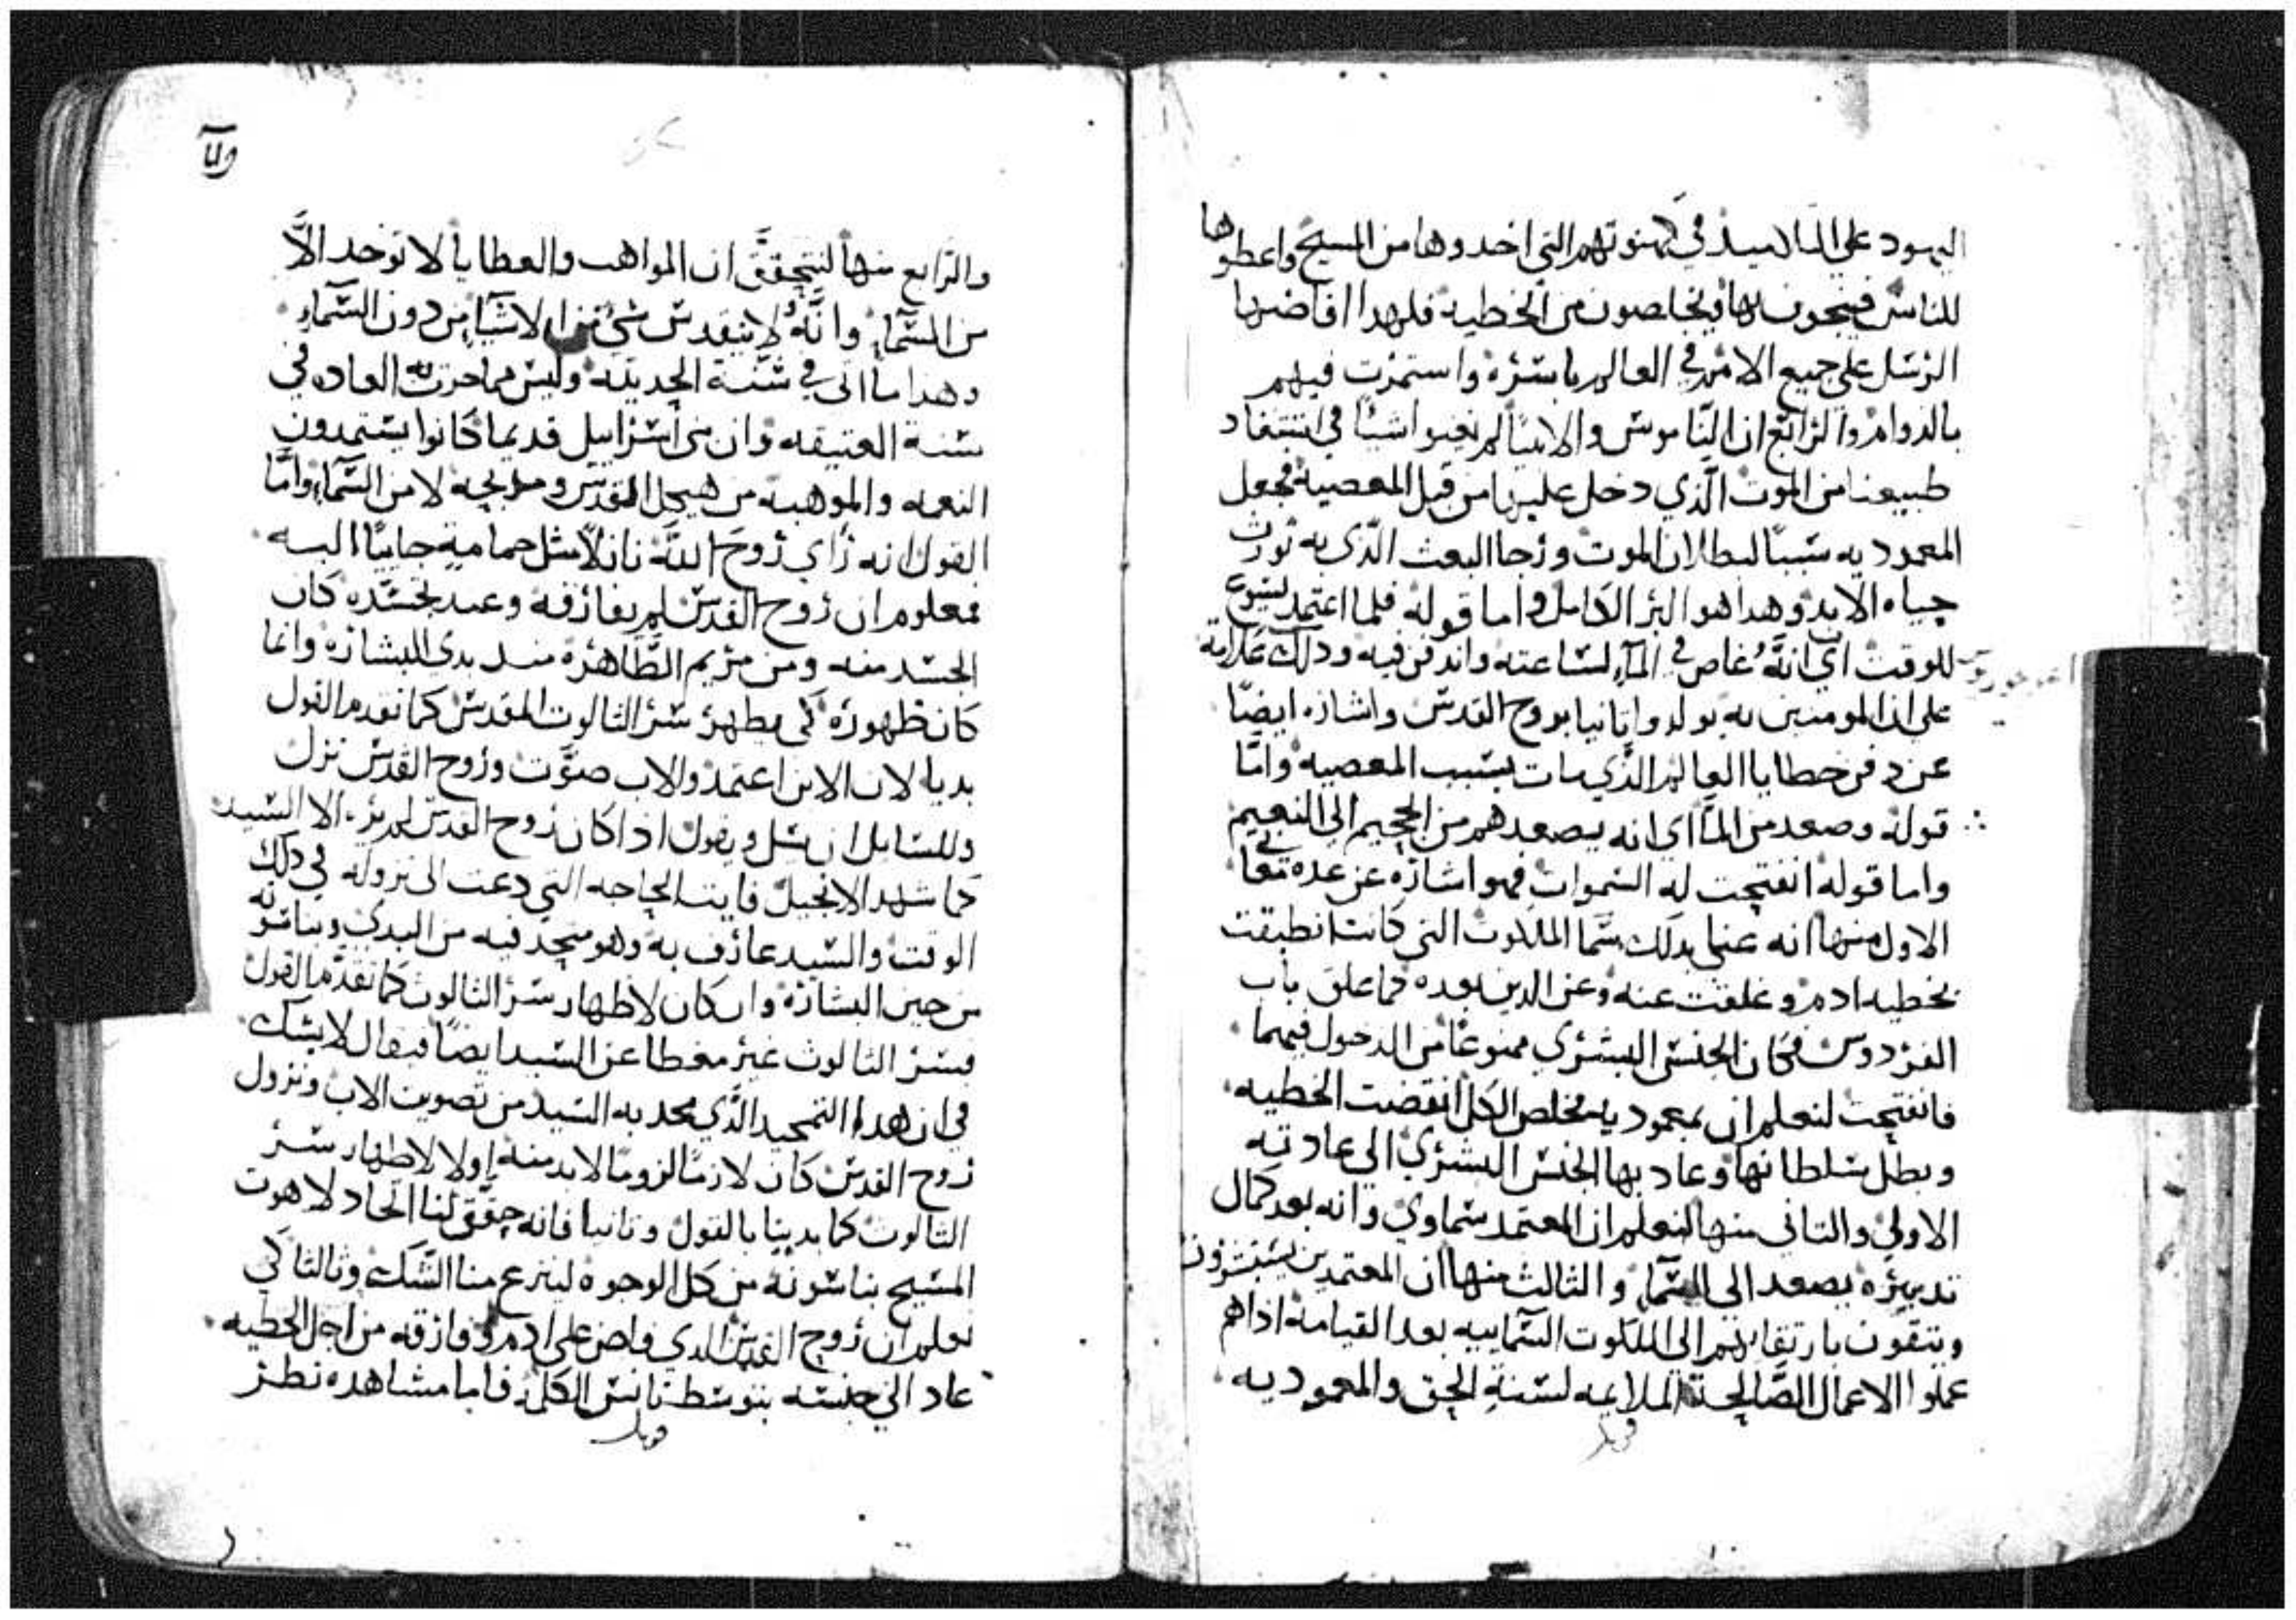 اليهود علي التلاميد في كهنوتهم التي اخدوها من المسيح واعطوها
للناس فينجون بها ويخلصون من الخطيه فلهدا افاضها
الرسل علي جميع الامم في العالم باسره واستمرت فيهم
بالدوام والرابع ان الناموس والانبيا لم يعينوا شيًا في استنقاد
طبيعتنا من الموت الَّذي دخل عليها من قبل المعصية فجعل
المعموديه سببًا لبطلان الموت ورجا البعث الَّدي به نورث
حياه الابد وهدا هو البر الكامل واما قوله فلما اعتمد يسوع
للوقت اي انَّهُ غاص في المآء لساعته واندفن فيه ودلك علامة
علي ان المومنين به يولدوا ثانيا بروح القدس واشاره ايضًا
عن دفن خطايا العالم الَّذي مات بسبب المعصيه وامَّا
قوله وصعد من المآ اي انه يصعدهم من الجحيم الي النعيم
واما قوله انفتحت له السموات فهو اشاره عن عده معاني
الاول منها انه عني بدلك سما الملكوت التي كانت انطبقت
بخطيه ادم وغلقت عنه وعن الدين بعده كما غلق باب
الفردوس فكان الجنس البشري ممنوعًا من الدخول فيهما
فانفتحت لنعلم ان بمعمودية مخلص الكل انقضت الخطيه
وبطل سلطانها وعاد بها الجنس البشري الي عادته
الاولي والثاني منها لنعلم ان المعتمد سماوي وانه بعد كمال
تدبيره يصعد الي السماء والثالث منها ان المعتمدين يستبشرون
ويتقون بارتقايهم الي الملكوت السماييه بعد القيامة اداهم
عملوا الاعمال الصَّالحة الملايمه لسنة الحق والمعموديه
قوبل
والرابع منها لنتحقق ان المواهب والعطايا لا توخد الَّا
من السَّماء وانَّهُ لا يتقدس شئ من الاشيا من دون السَّماء
وهدا ما اتى في سُنّة الحديثه وليس مما جرت به العاده في
سنة العتيقه وان بني أسراييل قديما كانوا يستمدون
النعمه والموهبه من هيكل القدس ومدبحه لا من السَّماء وامَّا
القول انه رَاي رُوحَ اللَّه نازلًا مثل حمامةٍ جاييًا اليه
فمعلوم ان روح القدس لم يفارقه وعند تجسّده كان
الجسد منه ومن مريم الطَّاهره مند بدي البشاره وانما
كان ظهوره كي يطهر سر التالوت المقدس كما تقدم القول
بديا لان الابن اعتمد والاب صوَّت وروح القدس نزل
وللسايل ان يسل ويقول ادا كان روح القدس لم يره الا السيد
كما شهد الانجيل فايت الحاجه التي دعت الى نزوله في دلك
الوقت والسيد عارف به وهو متحد فيه من البدي وبناسوته
من حين البشاره وان كان لاظهار سر الثالوث كما تقدم القول
فسر الثالوث غير مغطا عن السيد ايضًا فيقال لا يشك
في ان هدا التمجيد الَّذي مجد به السيد من تصويت الاب ونزول
روح القدس كان لازمًا لزومًا لابد منه اولا لاظهار سر
التالوت كما بدينا بالقول وثانيا فانه حقّق لنا اتحاد لاهوت
المسيح بناسوته من كل الوجوه لينزع منا الشك وثالثا كي
نعلم ان روح القدس الدي فاض علي ادم وفارقه من اجل الخطيه
عاد الي جنسه بتوسط تانس الكل فاما مشاهده نظر
قوبل